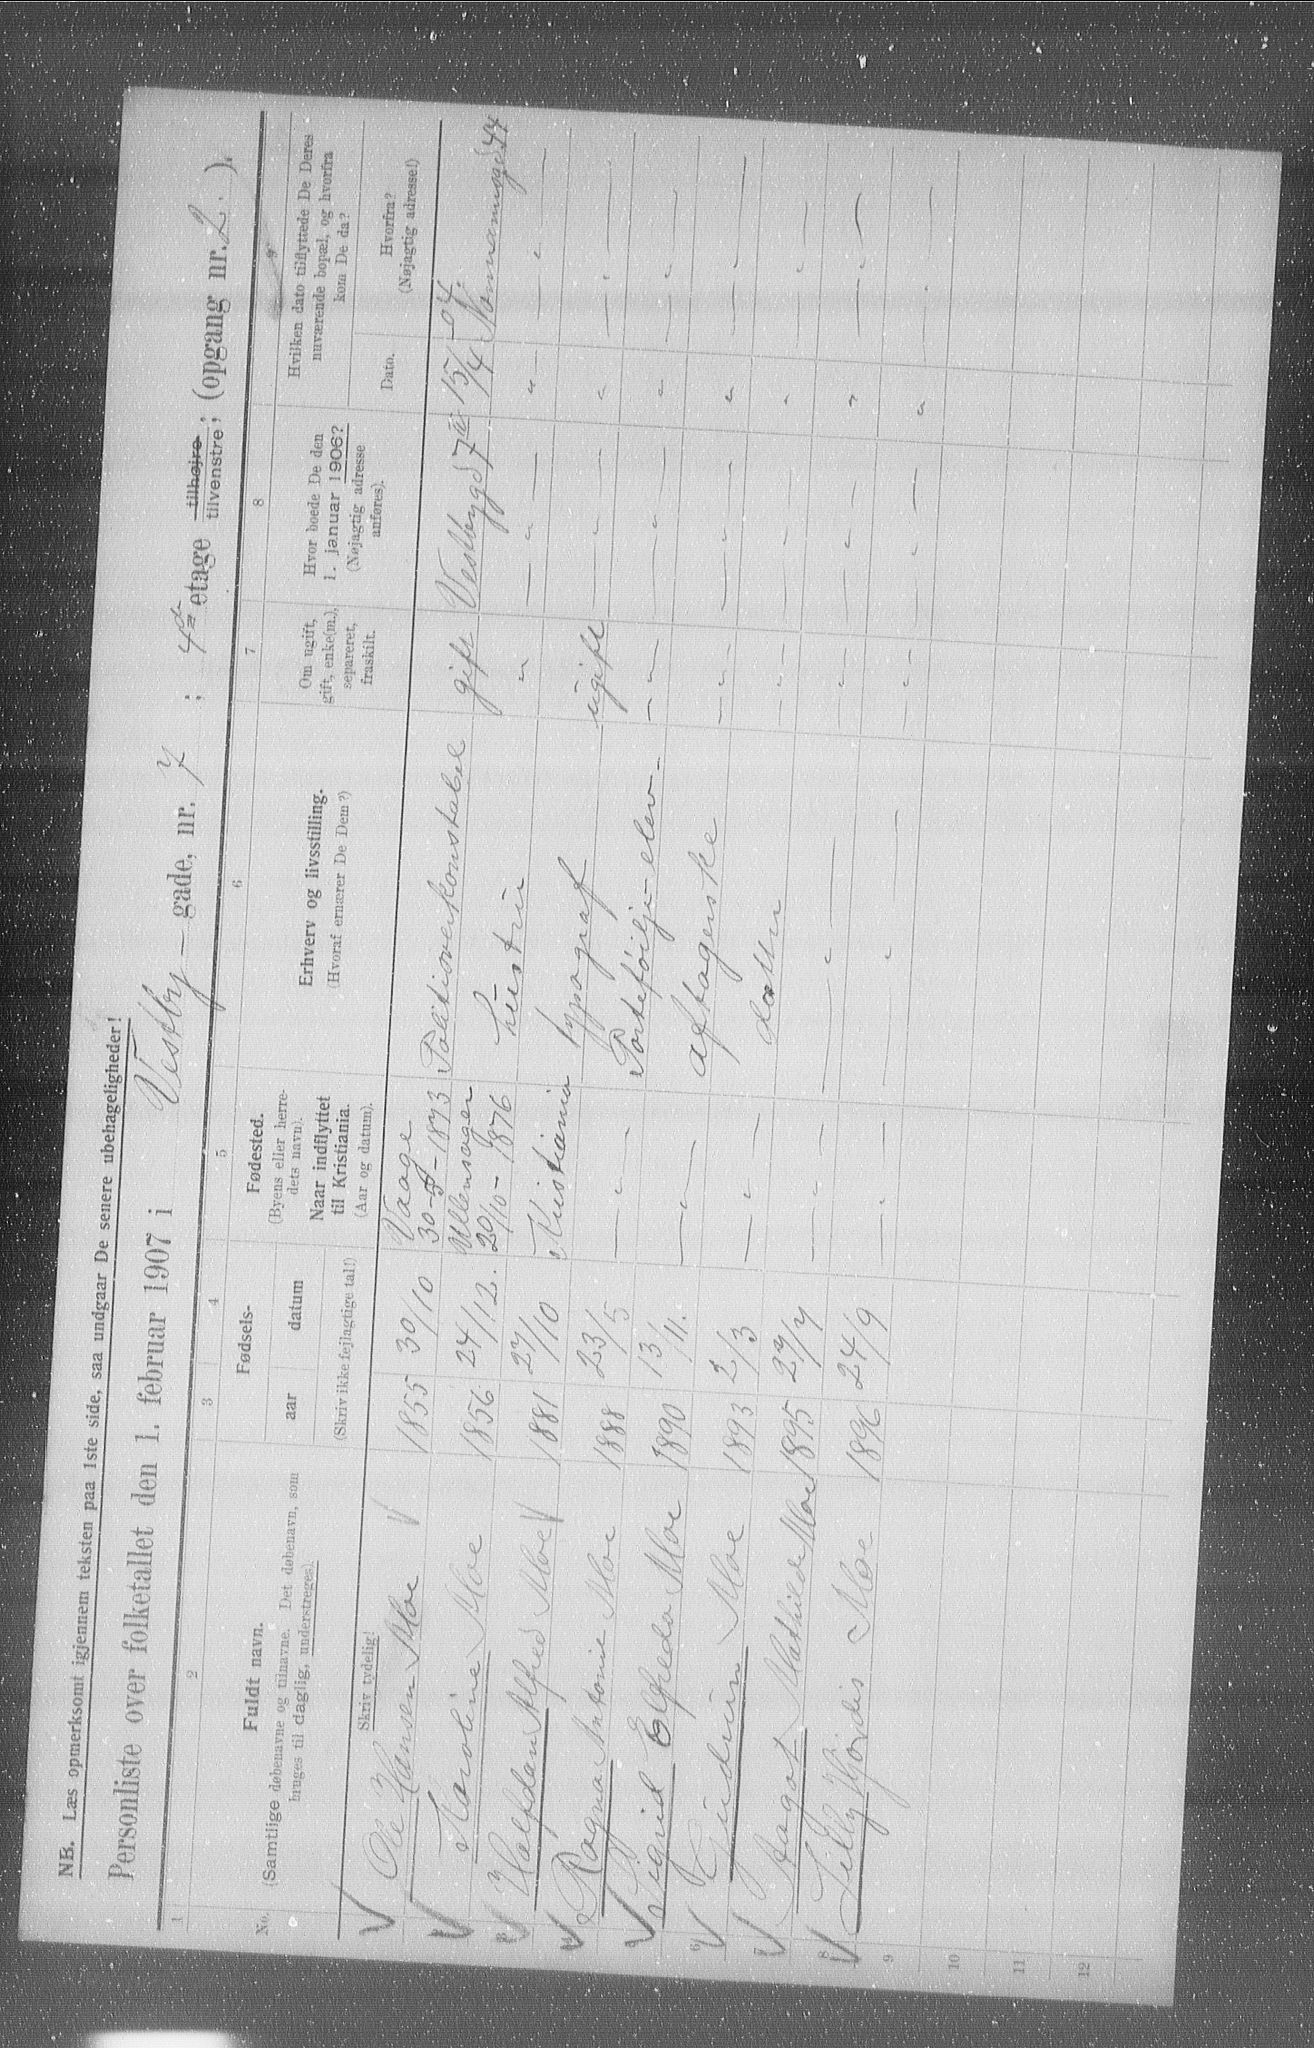 NB. Læs opmerksomt igjennem teksten paa 1ste side, saa undgaar De senere ubehageligheder!
Personliste over folketallet den 1. februar 1907 i Vestby-gade, nr. 7; 4de etage tilhøjre tilvenstre; (opgang nr. 2.).
1 2 3 4 5 6 7 8 9
No.
Fuldt navn.
(Samtlige døbenavne og tilnavne. Det døbenavn, som
bruges til daglig, understreges).
Skriv tydelig!
Fødsels-
aar datum
(Skriv ikke fejlagtige tal!)
Fødested.
(Byens eller herre-
dets navn).
Naar indflyttet
til Kristiania.
(Aar og datum).
Erhverv og livsstilling.
(Hvoraf ernærer De Dem?)
Om ugift,
gift, enke(m.),
separeret,
fraskilt.
Hvor boede De den
1. januar 1906?
(Nøjagtig adresse
anføres).
Hvilken dato tilflyttede De Deres
nuværende bopæl, og hvorfra
kom De da?
Dato.
Hvorfra?
(Nøjagtig adresse!)
Ole Hansen Moe 1855 30/10 Vaage 30-5-1873 Politioverkonstabel gift Vestbygd 7 IV 15/4 04. Normannsgd 44
Karoline Moe 1856 24/12. Ullensager 20/10-1876 hustru " — " — " — " —
3 Halfdan Alfred Moe 1881 27/10 Kristiania typograf ugift — " — " — " —
4 Ragna Antonie Moe 1888 23/5 — " — Portefölje-elev- — " — — " — " — " —
Sigrid Elfreda Moe 1890 13/11. — " — aftagerske — " — — " — " — " —
6 Gudrun Moe 1893 2/3 — " — datter — " — — " — " — " —
7 Aagot Mathilde Moe 1895 27/7 — " — — " — — " — — " — " — " —
8 Lilly Hjördis Moe 1896 24/9 — " — — " — — " — — " — " — " —
9
10
11
12